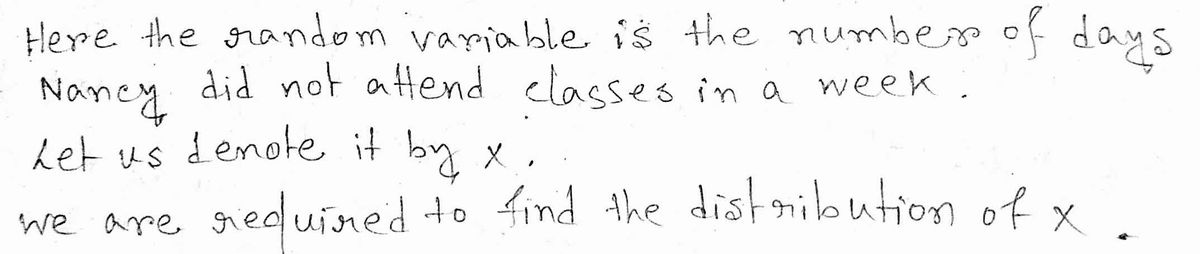 Here the random variable is the number of days
Nancy did not attend classes in a week.
Let us denote it by x.
we are required to find the distribution of x.